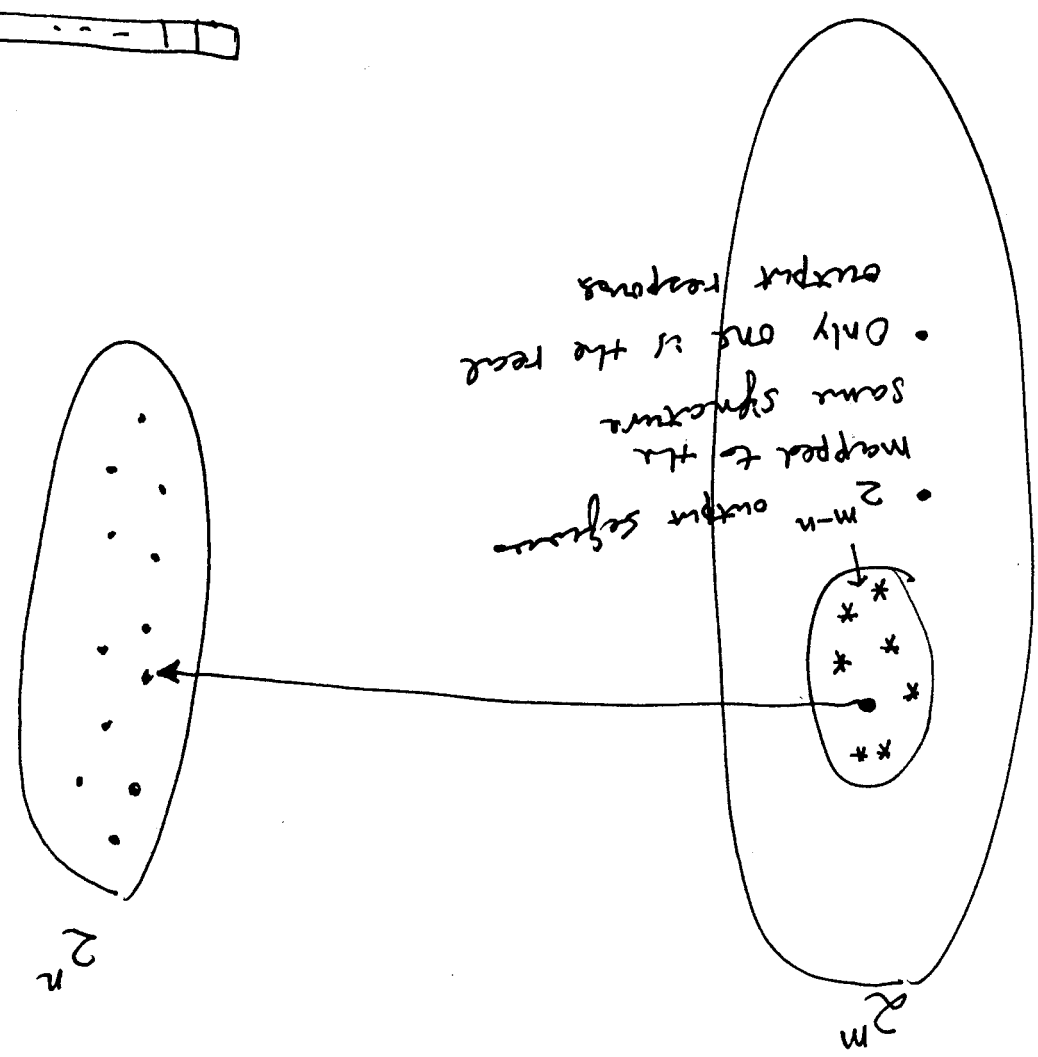 2^m
2^n
• 2^{m-n} output sequences
mapped to the
same signature
• Only one is the real
output response